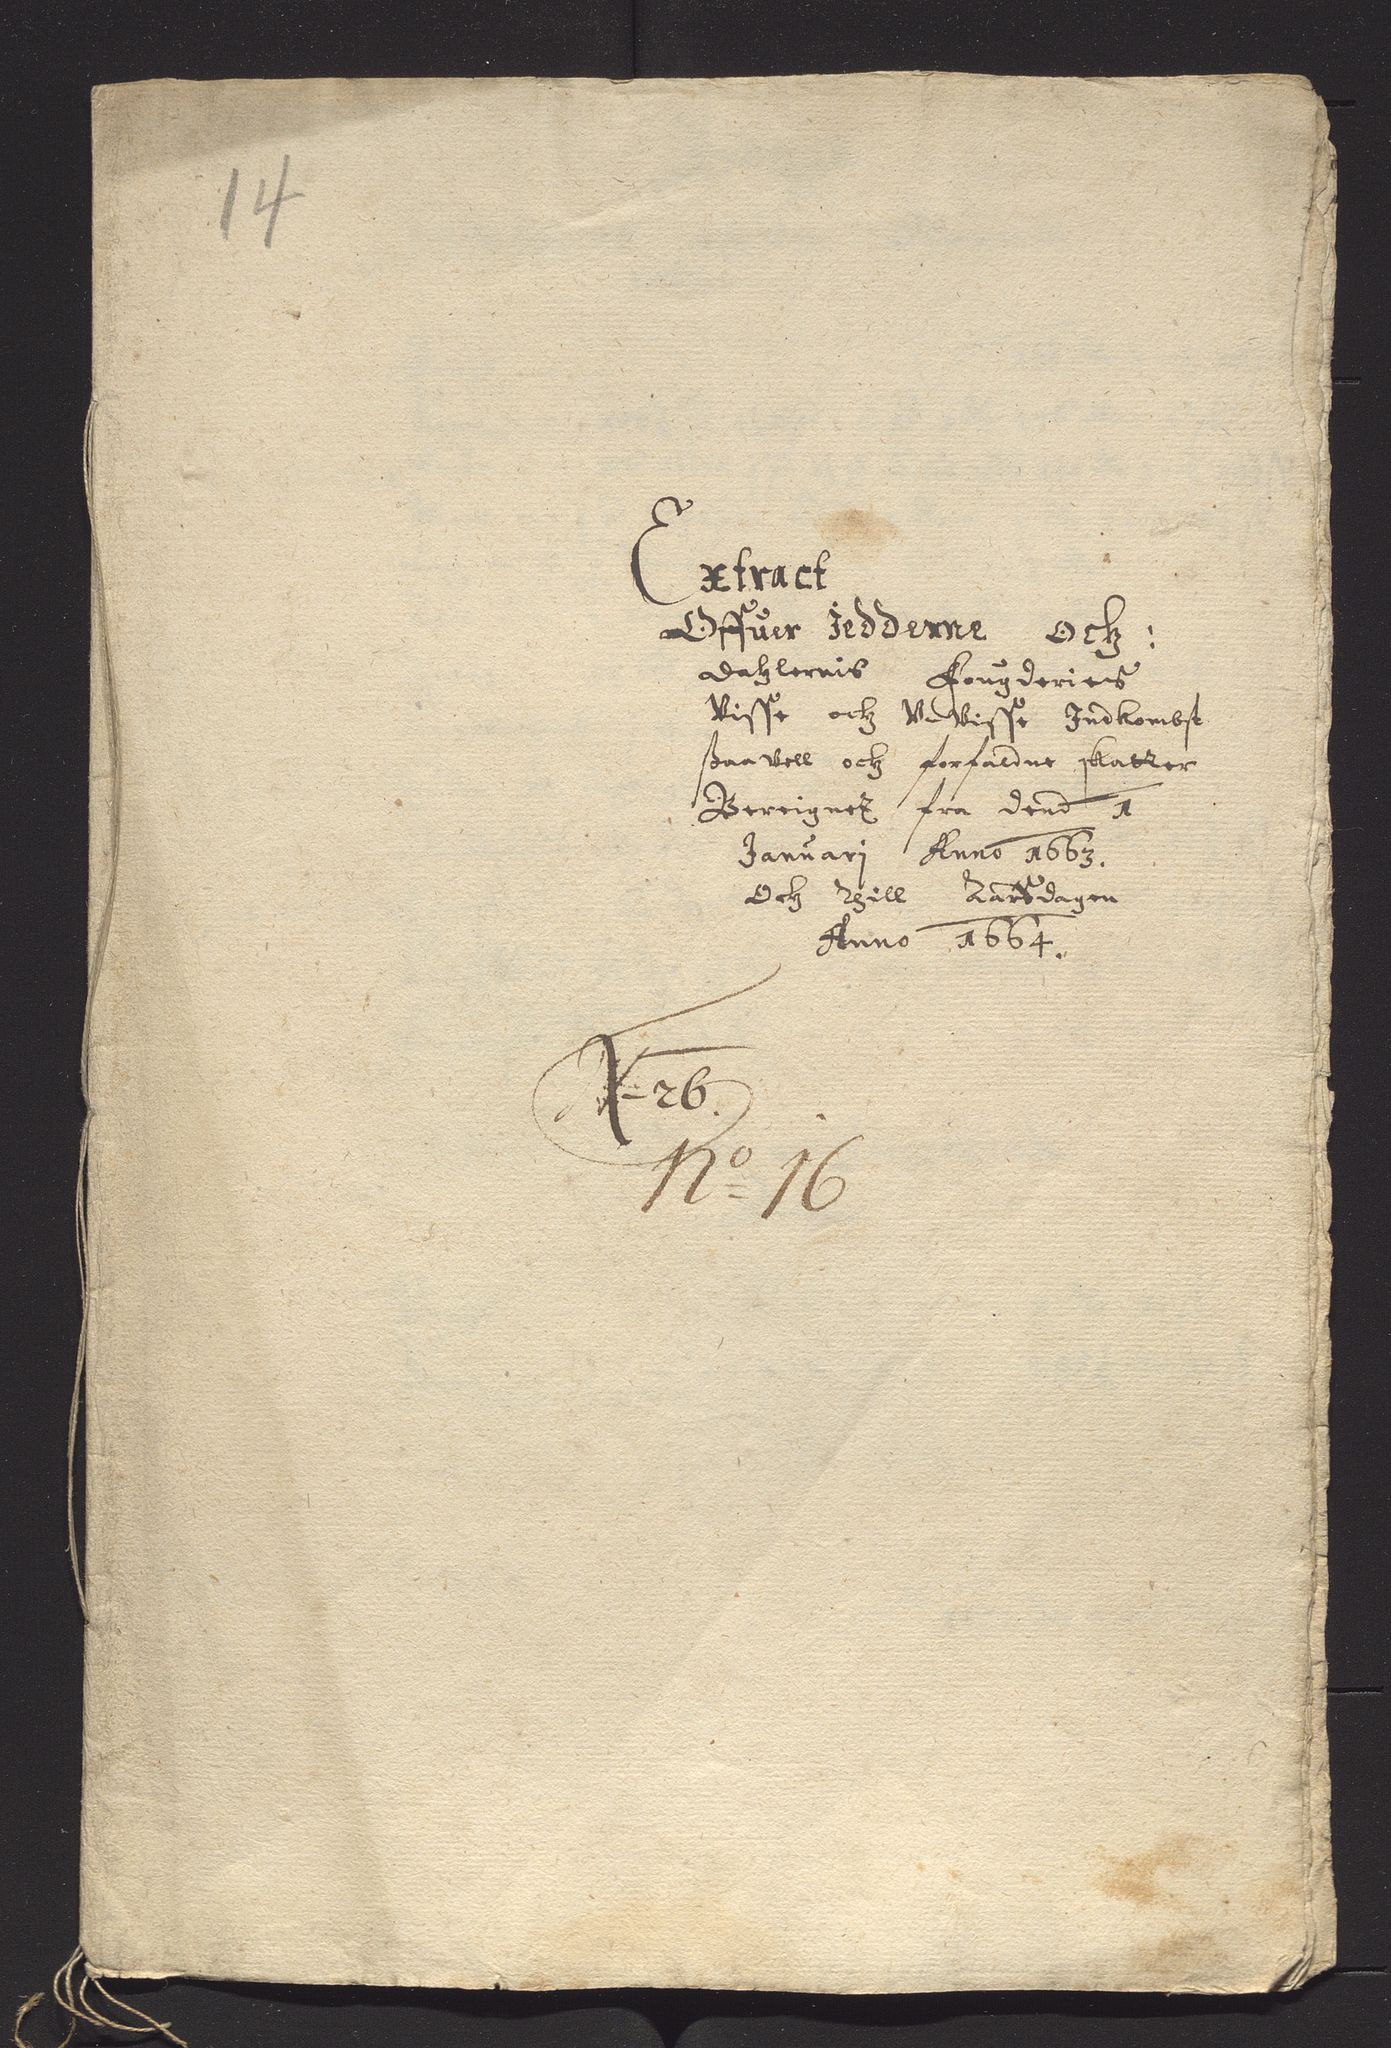 14
Extract
Offuer Jedderne Och:
dahlernis Fougderiers
Visse och UVisse Indkombst
saavell och forfaldne skatter
Bereignet fra dend 1
Januarj Anno 1663.
Och thill Aarsdagen
Anno 1664.
26.
No 16